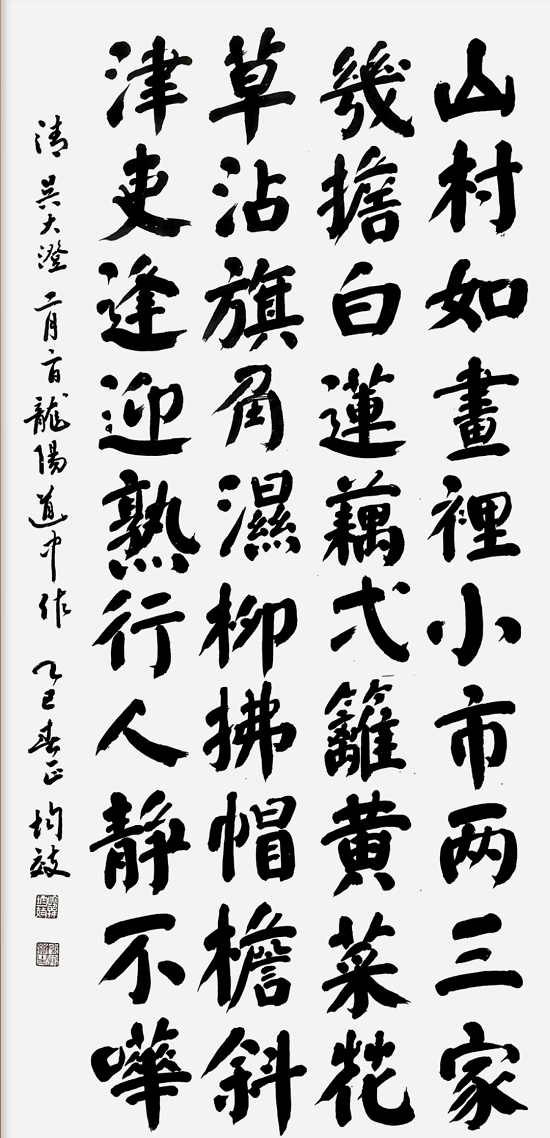 山村如畫裡小市两三家
幾擔白蓮藕弍籬黄菜花
草沾旗角濕柳拂帽檐斜
津吏逢迎熟行人靜不嘩
清吴大澄二月〻盲龍陽道中作乙巳春正均效